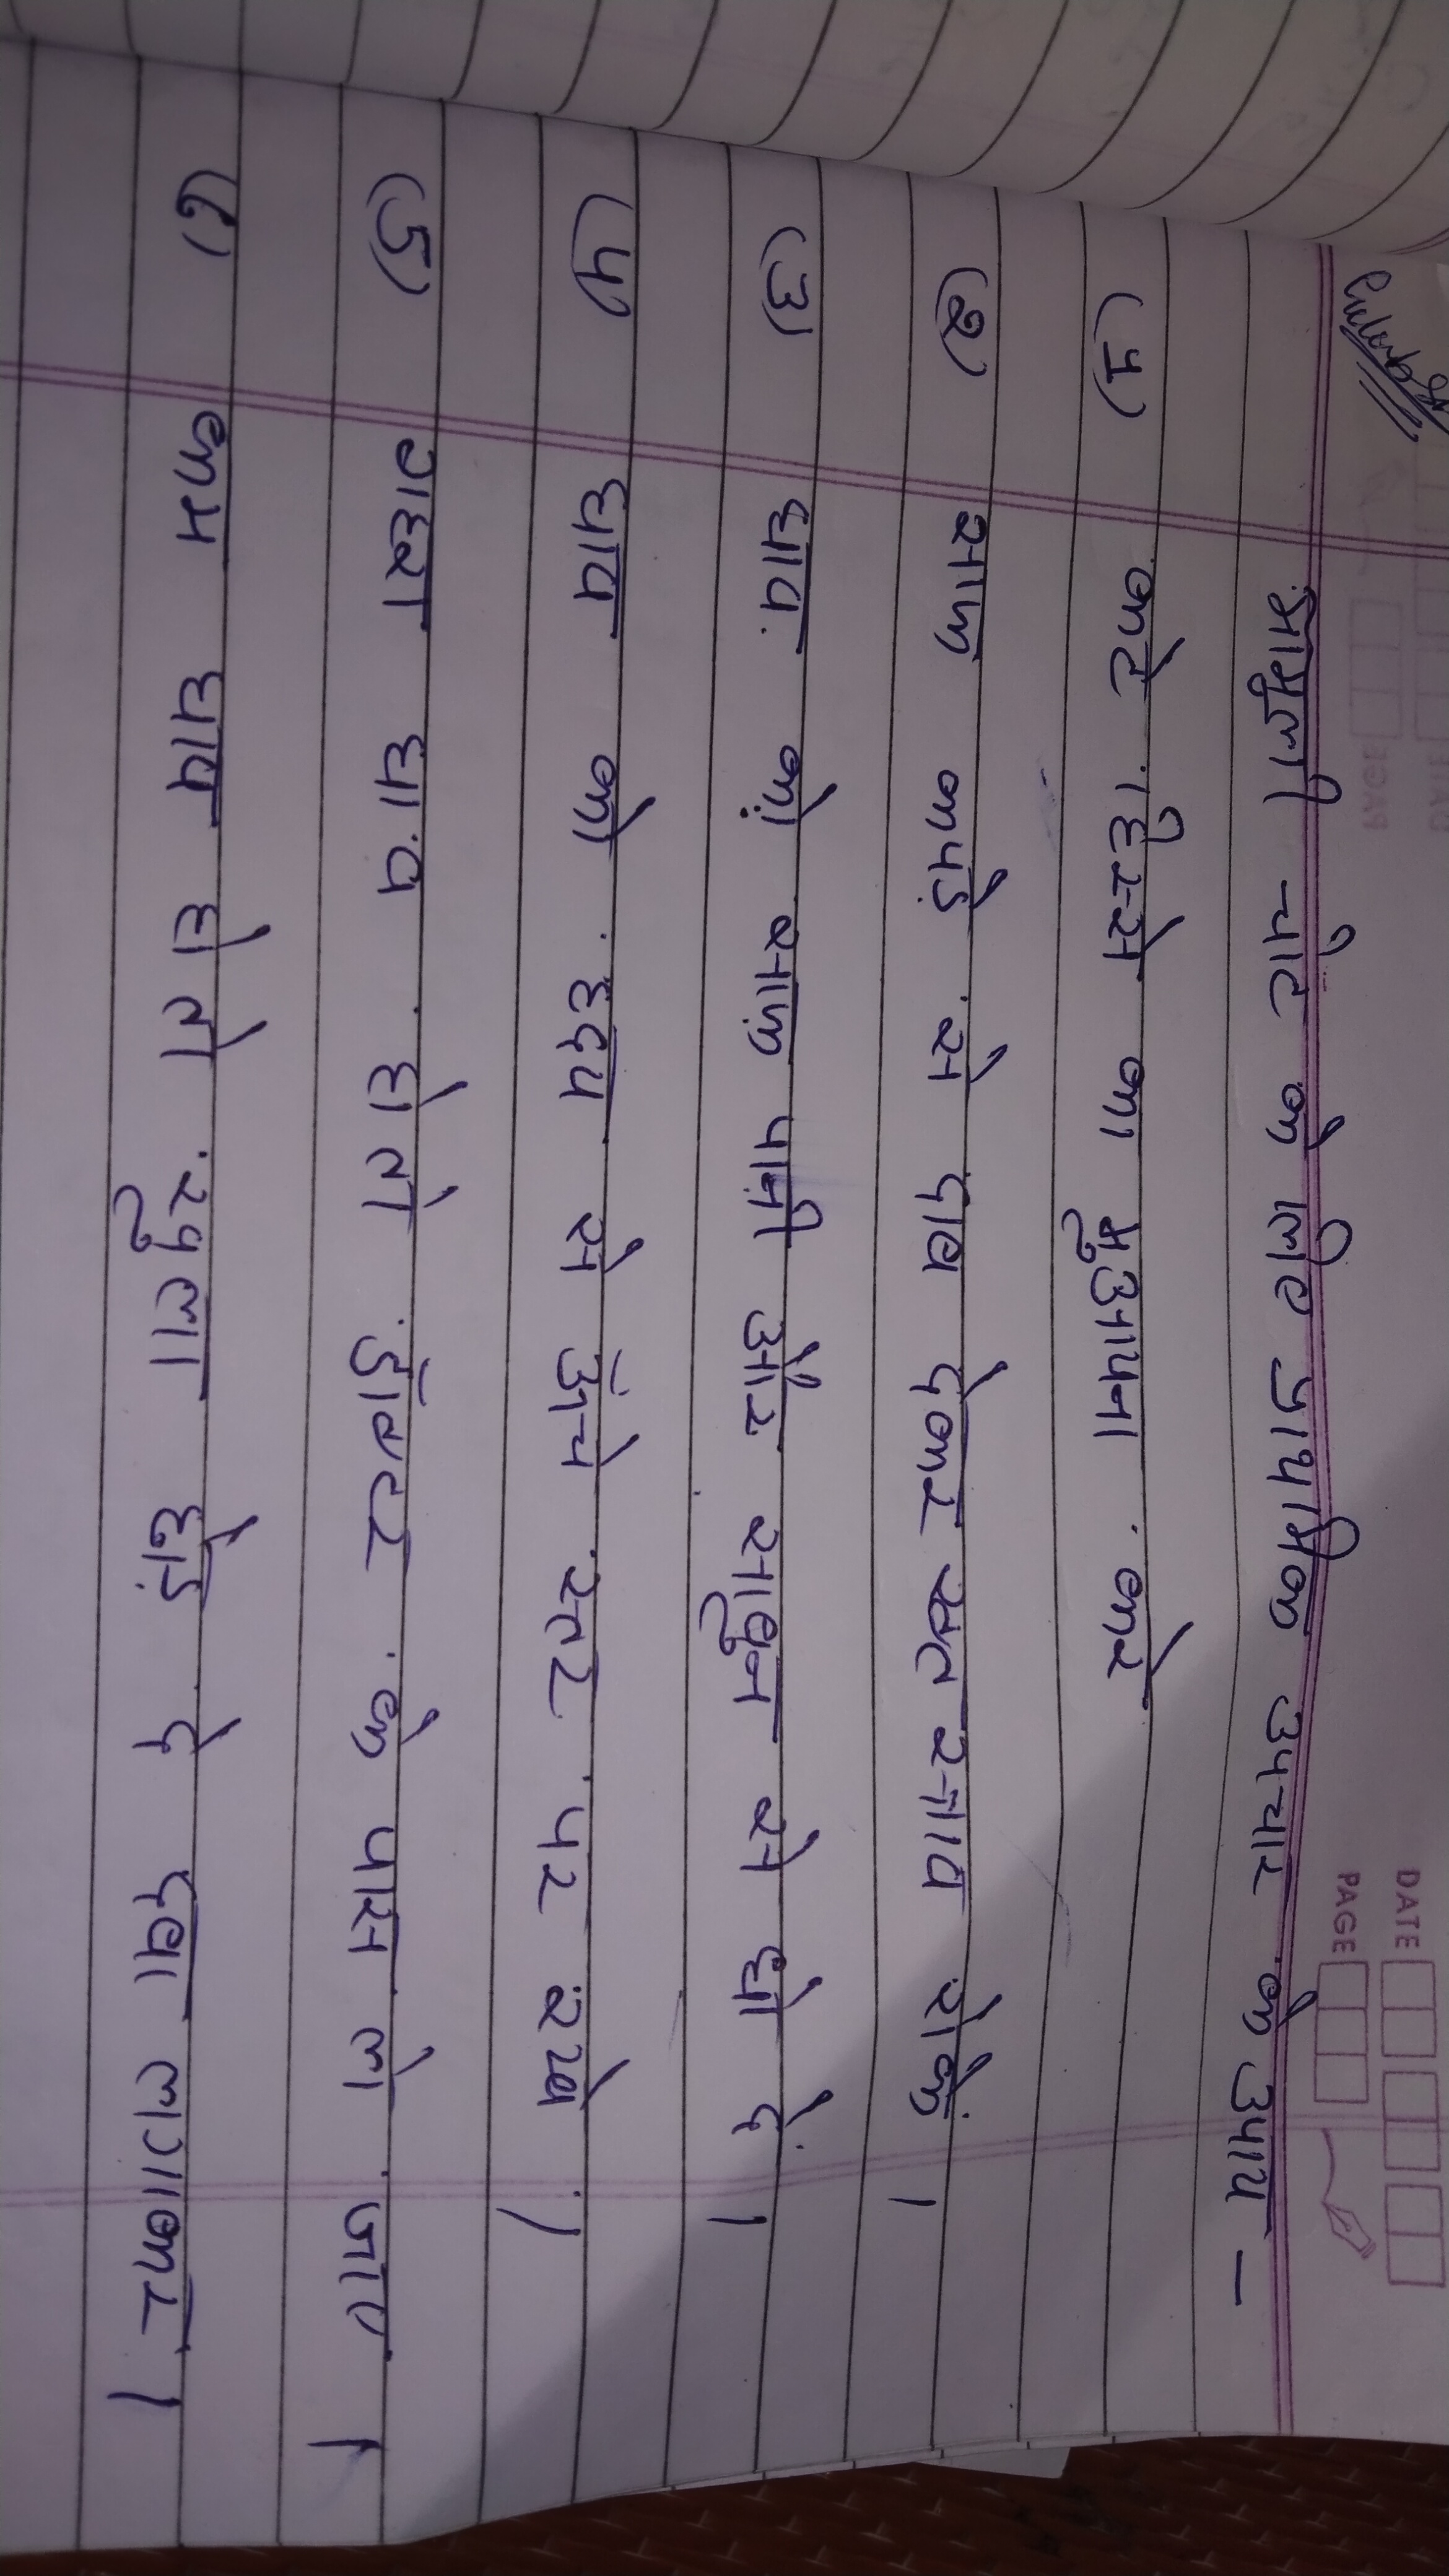 मामुली चोट के लिए प्राथमिक उपचार के उपाय –
(1) कटे हिस्से का मुआयना करे
(2) साफ कपड़े से दाब देकर रक्त स्त्राव रोकें ।
(3) घाव को साफ़ पानी और साबुन से धो दें ।
(4) घाव को हृदय से ऊंचे स्तर पर रखे ।
(5) गहरा घाव हो तो डॉक्टर के पास ले जाए ।
6) कम घाव हो तो खुला छोड़ दे दवा लगाकर ।
DATE
PAGE